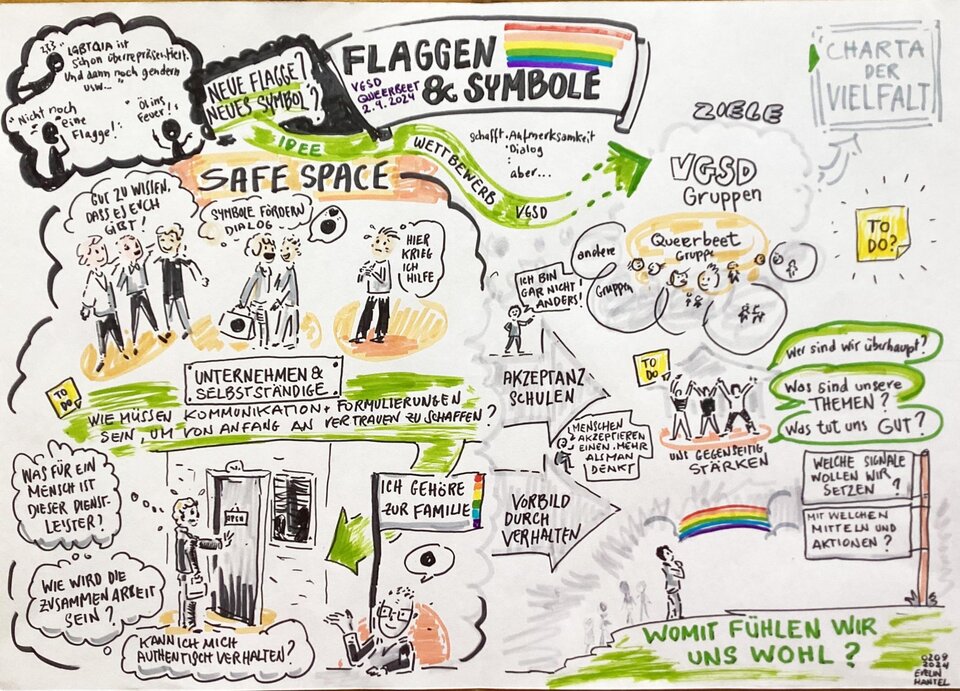 FLAGGEN
& SYMBOLE
VGSD
QUEERBEET
2.9.2024
NEUE FLAGGE?
NEUES SYMBOL?
LGBTQIA ist
schon überrepräsentiert.
Und dann noch gendern
usw..."
"Nicht noch
eine
Flagge!"
Öl ins
Feuer!
IDEE
WETTBEWERB
VGSD
schafft Aufmerksamkeit
Dialog
:
aber...
ZIELE
CHARTA
DER
VIELFALT
VGSD
Gruppen
Queerbeet
Gruppe
andere
Gruppen
TO
DO?
SAFE SPACE
GUT ZU WISSEN,
DASS ES EUCH
GIBT!
SYMBOLE FÖRDERN
DIALOG
HIER
KRIEG
ICH
HILFE
UNTERNEHMEN &
SELBSTSTÄNDIGE
TO
DO
WIE MÜSSEN KOMMUNIKATION + FORMULIERUNGEN
SEIN, UM VON ANFANG AN VERTRAUEN ZU SCHAFFEN?
WAS FÜR EIN
MENSCH IST
DIESER DIENST-
LEISTER?
WIE WIRD DIE
ZUSAMMENARBEIT
SEIN?
KANN ICH MICH
AUTHENTISCH VERHALTEN?
OPEN
ICH GEHÖRE
ZUR FAMILIE
ICH BIN
GAR NICHT
ANDERS!
AKZEPTANZ
SCHULEN
MENSCHEN
AKZEPTIEREN
EINEN MEHR
ALS MAN
DENKT
VORBILD
DURCH
VERHALTEN
TO
DO
UNS GEGENSEITIG
STÄRKEN
Wer sind wir überhaupt?
Was sind unsere
THEMEN?
Was tut uns GUT?
WELCHE SIGNALE
WOLLEN WIR
SETZEN?
MIT WELCHEN
MITTELN UND
AKTIONEN?
WOMIT FÜHLEN WIR
UNS WOHL?
0209
2024
EVELIN
MANTEL